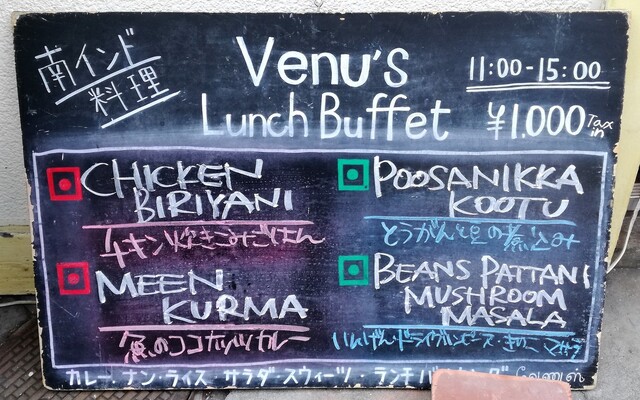 南インド
料理
Venu's
Lunch Buffet
11:00-15:00
¥1.000 Tax in
CHICKEN
BIRIYANI
チキン炊きこみごはん
MEEN
KURMA
魚のココナッツカレー
POOSANIKKA
KOOTU
とうがんと豆の煮込み
BEANS PATTANI
MUSHROOM
MASALA
いんげん・ドライグリンピース・きのこ
カレー・ナン・ライス・サラダ・スウィーツ・ランチ